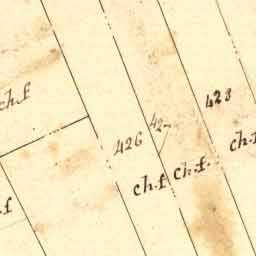 ch.f
423
426
42
ch.f
ch.f
ch.f
.f